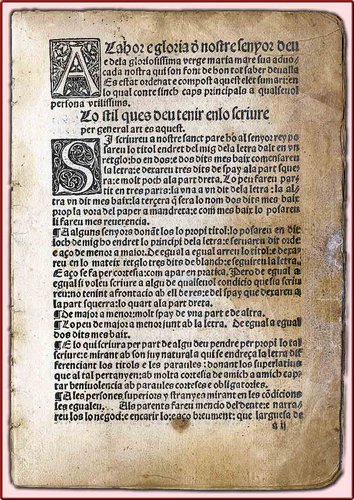 A Lahor e gloria d̄ nostre senyor deu
e dela gloriosissima verge maria mare sua aduo
cada nostra qui son font de bon tot saber deualla
Es estat ordenat e compost aquest examē: en
lo qual conte sinch caps principals a qualseuol
persona vtilissims.
Lo stil ques deu tenir enlo scriure
per general art es aquest.
SI scriureu a nostre sanct pare ho al senyor rey po
sareu lo titol endret del mig dela letra dalt en vn
retglo: ho en dos: e dos dits mes baix comensareu
la letra: e dexareu tres dits de spay ala part sque
rra: e molt poch ala part dreta. Lo peu fareu par
tit en tres parts: la vna a vn dit dela letra: la al
tra vn dit mes bait: la tercera q̄ sera lo nom dos dits mes baix
prop la vora del paper a mandreta: e com mes baix lo posareu
li fareu mes reuerencia.
¶ A alguns senyors donāt los lo propi titol: lo posareu en dit
loch de mig ho endret lo principi dela letra: e seruareu dit orde
e aço de menor a maior. De egual a egual areu lo titol: e dexar
eu en lo mateix retglo tres dits de blanch: e seguireu la letra.
E aço se fa per cortesia: com apar en pratica. Pero de egual a
egual si voleu scriure a algu de qualseuol condicio que sia scriu
reu: no tenint afrontacio ab ell de res: e del spay que dexareu a
la part squerra: lo qual a la part dreta.
¶ De maior a menor: molt spay de vna part e de altra.
¶ Lo peu de maior a menor junt ab la letra. De egual a egual
dos dits mes baix.
¶ E lo qui scriura per part de algu deu pendre per propi lo tal
scriure: e mirant ab son juy natural a qui se endreça la letra dif
ferenciant los titols e les paraules: donant los superlatius
al que tal pertanyen: ab molta cortesia de amich a amich cap
tar beniuolencia ab paraules corteses e obligatories.
¶ A les persones superiors y stranyes mirant en les cōdicions
les egualeu. Als parents fareu mencio del deute: e narra
reu los lo negoci: e encarir lo: e aço breument: que larguesa de
a ij